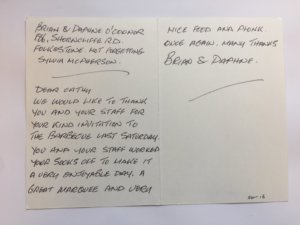 BRIAN & DAPHNE O'CONNOR
SHORNCLIFFE RD.
FOLKESTONE. NOT FORGETTING
SYLVIA MCPHERSON.
DEAR CATHY,
WE WOULD LIKE TO THANK
YOU AND YOUR STAFF FOR
YOUR KIND INVITATION TO
THE BARBECUE LAST SATURDAY.
YOU AND YOUR STAFF WORKED
YOUR SOCKS OFF TO MAKE IT
A VERY ENJOYABLE DAY. A
GREAT MARQUEE AND VERY
NICE FOOD AND PLONK
ONCE AGAIN. MANY THANKS
BRIAN & DAPHNE.